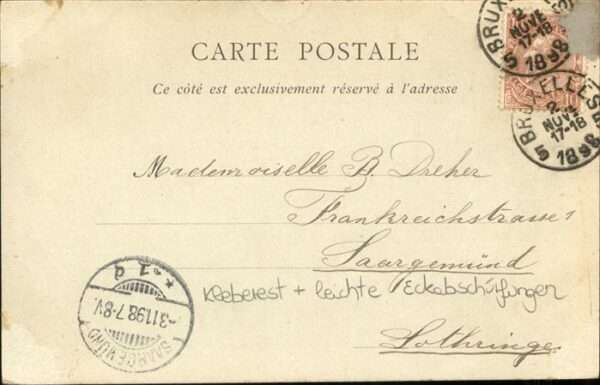 BRUXELLES
2
NOVE
17-18
1898
5
CARTE POSTALE
Ce côté est exclusivement réservé à l'adresse
BRUXELLES
2
NOVE
17-18
1898
5
Mademoiselle B. Dreher
Frankreichstrasse 1
Saargemünd
Kleberest + leichte Eckabschürfungen
Lothringe
SAARGEMÜND
-3.11.98.7-8V.